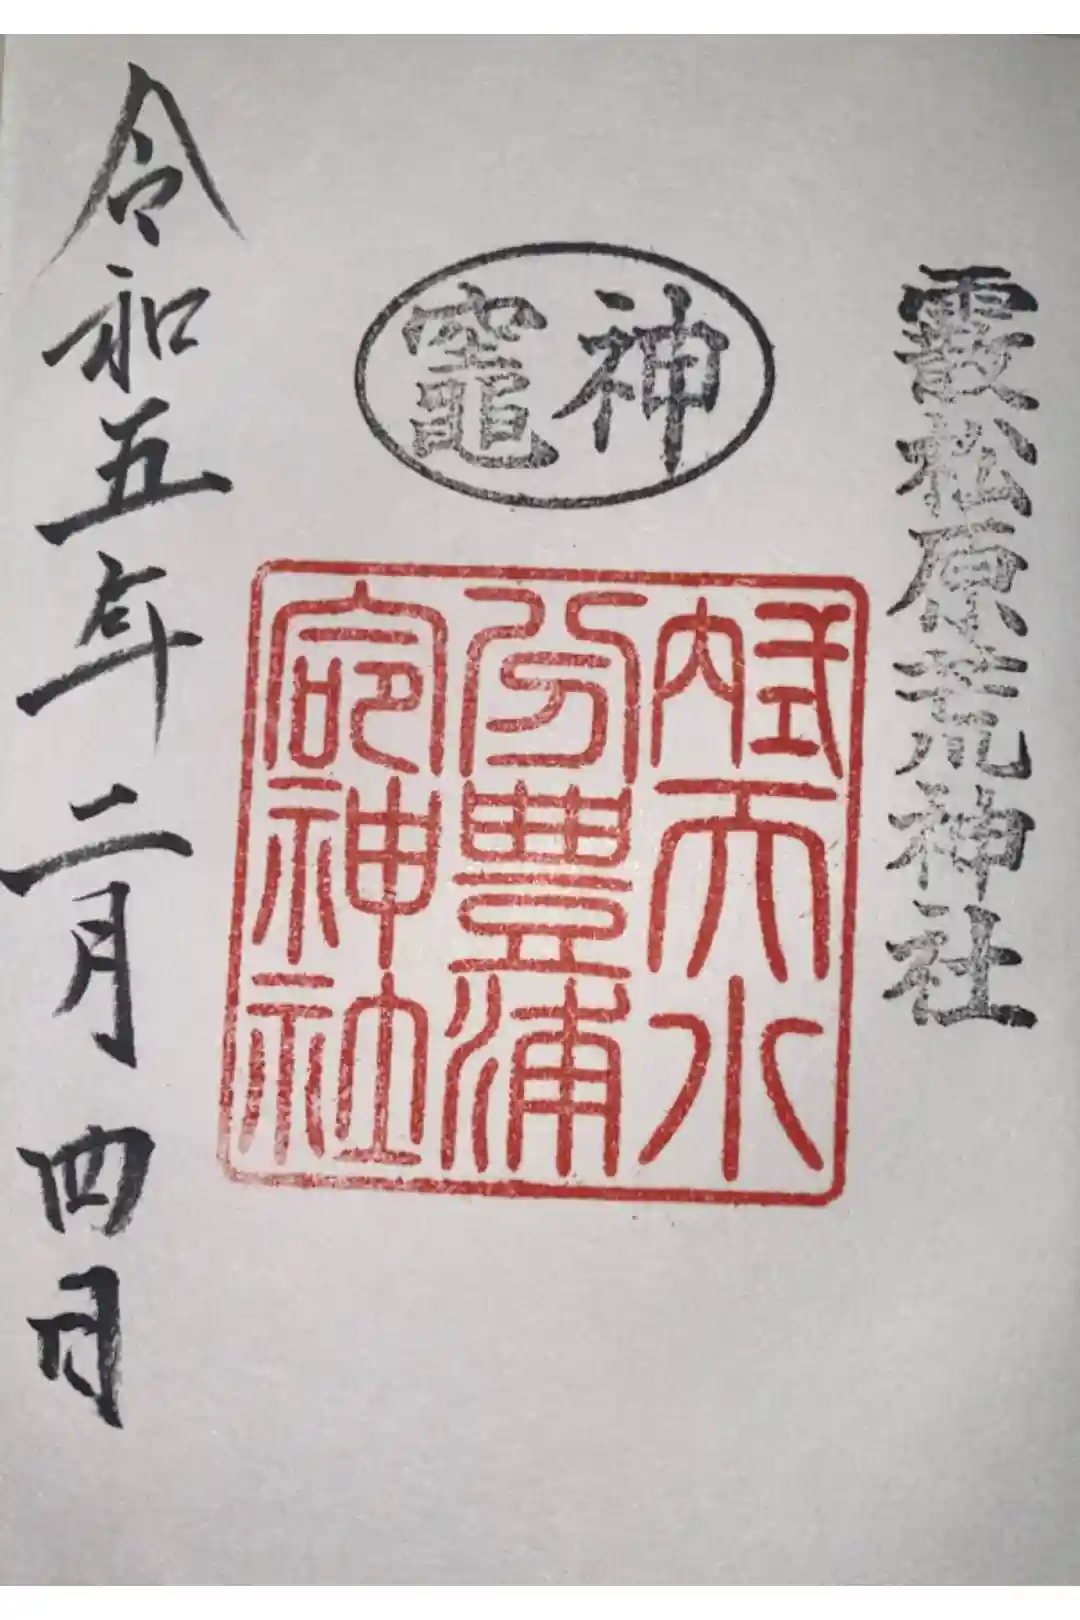 霰松原荒神社
神竈
式内天水
分豊浦
命神社
令和五年二月四日